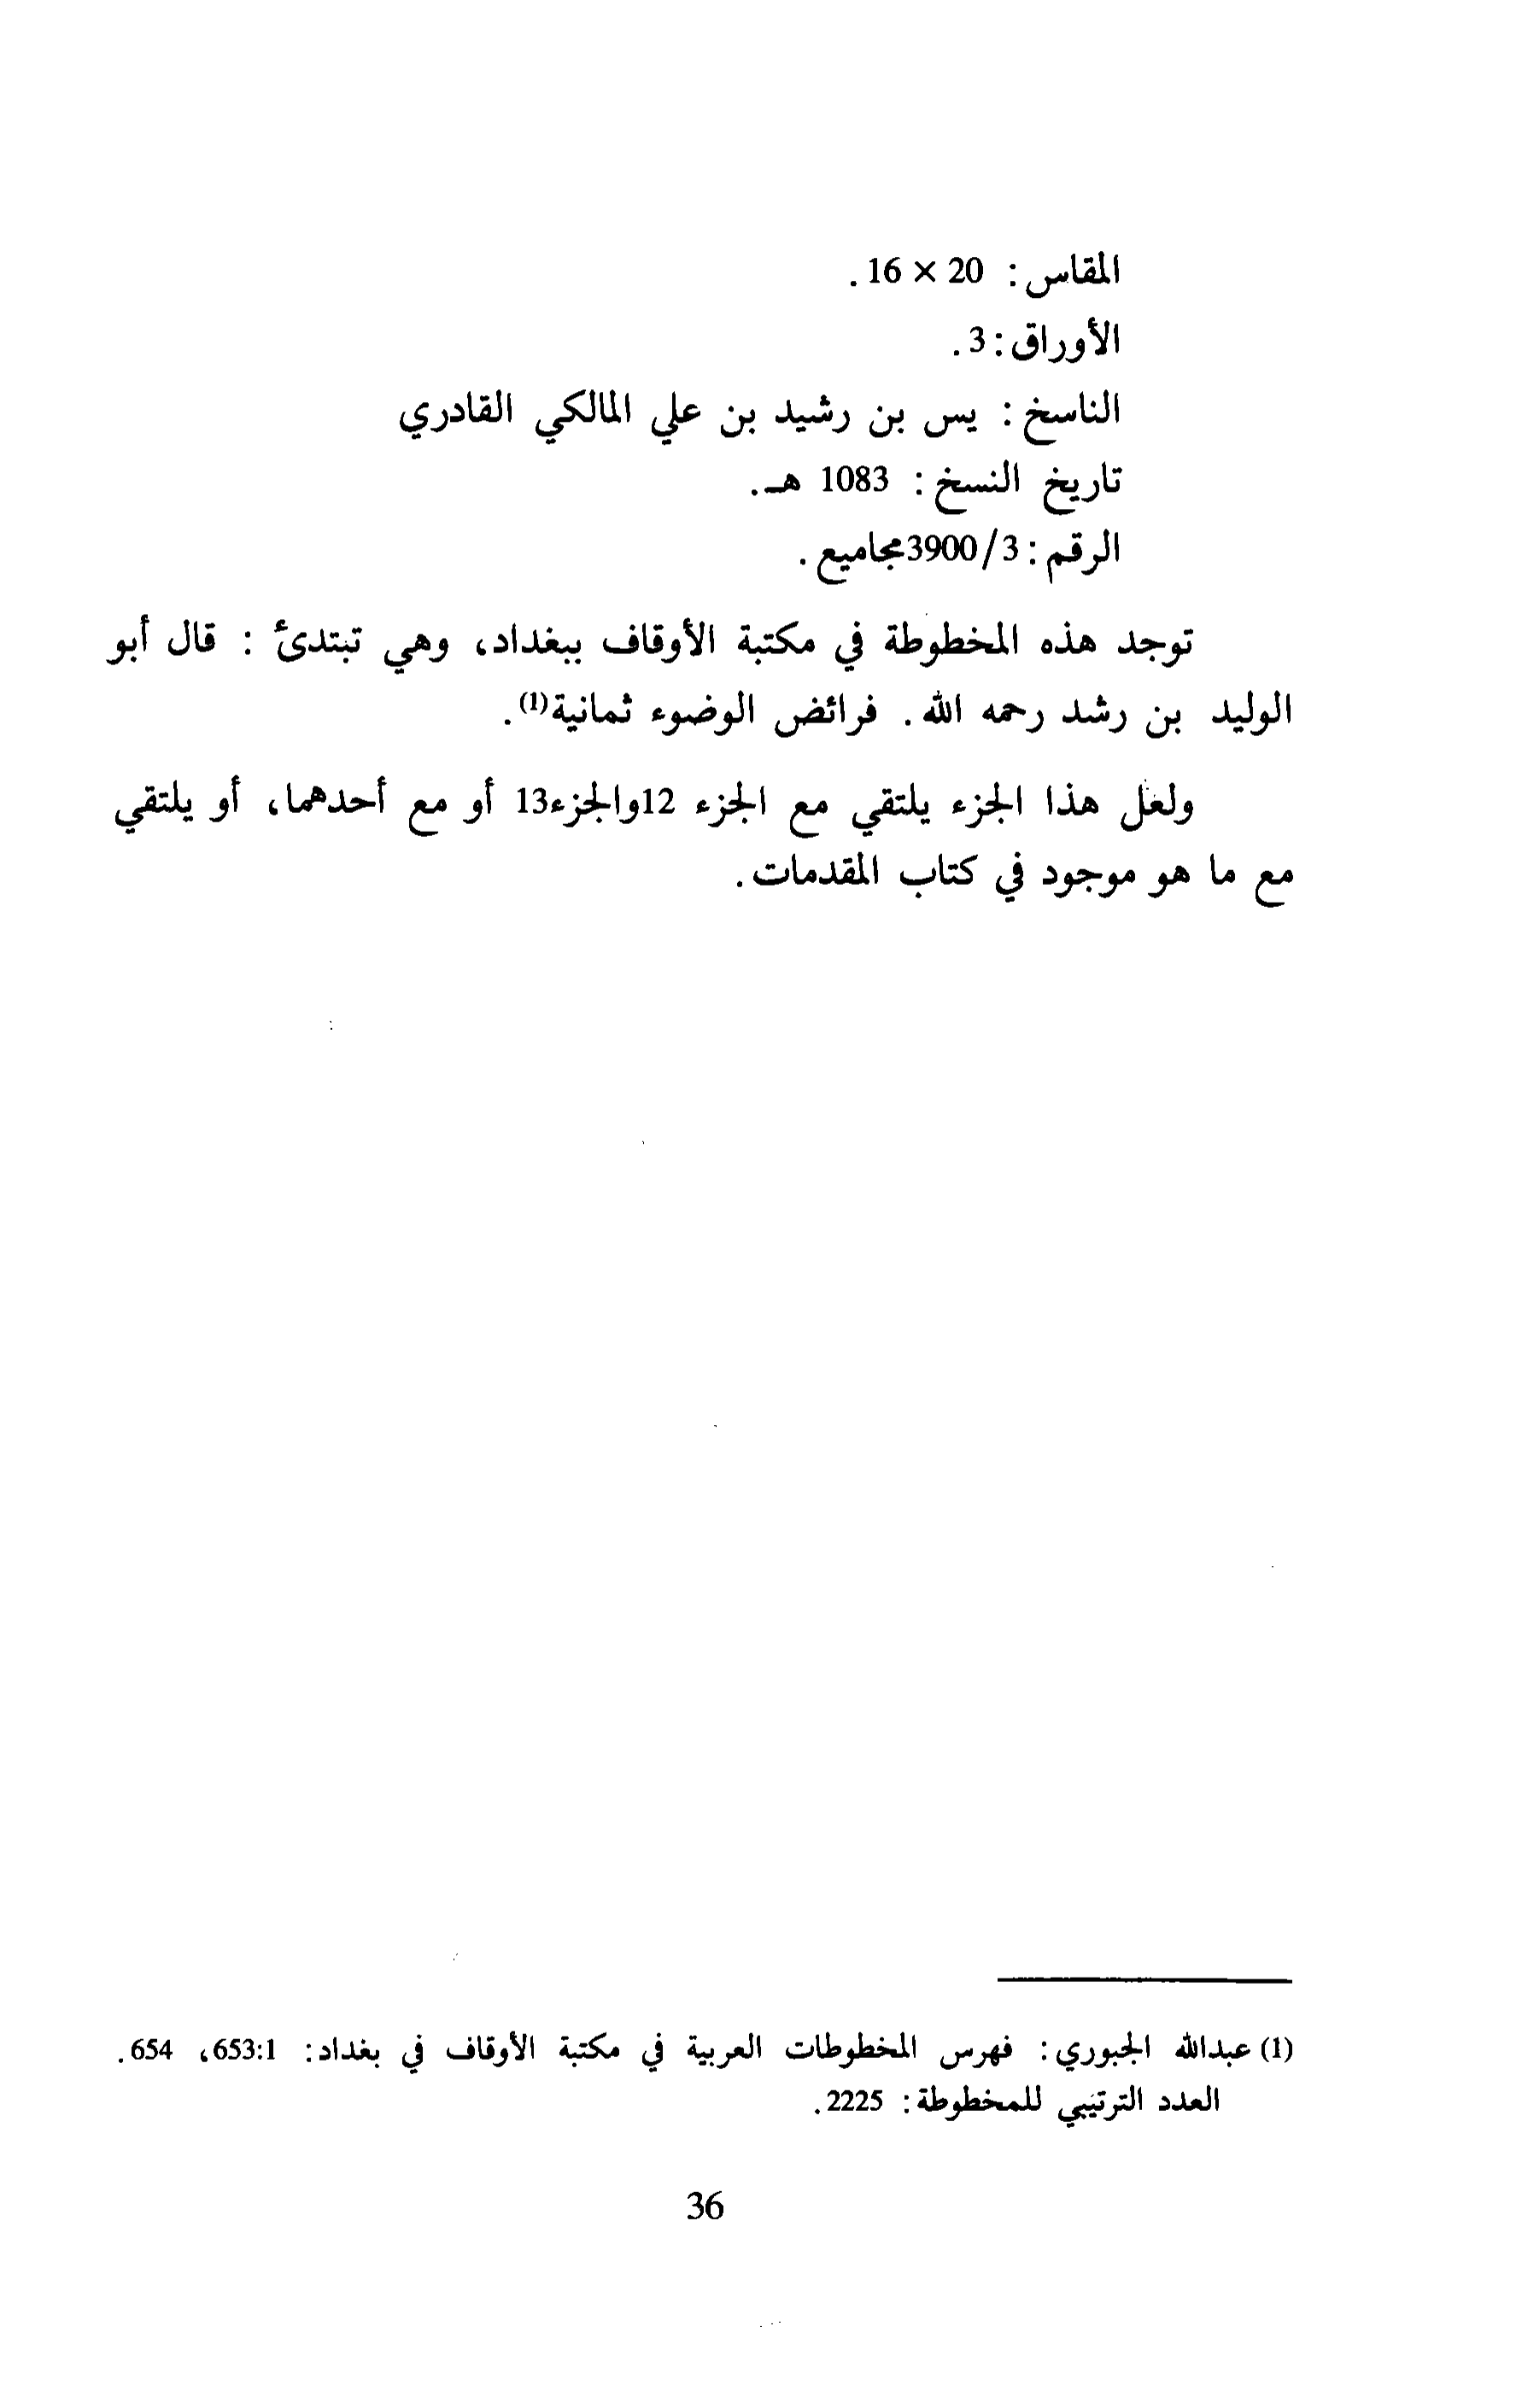 المقاس : 20 × 16 .
الأوراق : 3 .
الناسخ : يس بن رشيد بن علي المالكي القادري
تاريخ النسخ : 1083 هـ .
الرقم : 3900/3 مجاميع .
توجد هذه المخطوطة في مكتبة الأوقاف ببغداد، وهي تبتدئ : قال أبو
الوليد بن رشد رحمه الله . فرائض الوضوء ثمانية(1) .
ولعل هذا الجزء يلتقي مع الجزء 12 والجزء 13 أو مع أحدهما، أو يلتقي
مع ما هو موجود في كتاب المقدمات .
(1) عبدالله الجبوري : فهرس المخطوطات العربية في مكتبة الأوقاف في بغداد : 653:1، 654 .
العدد الترتيبي للمخطوطة : 2225 .
36